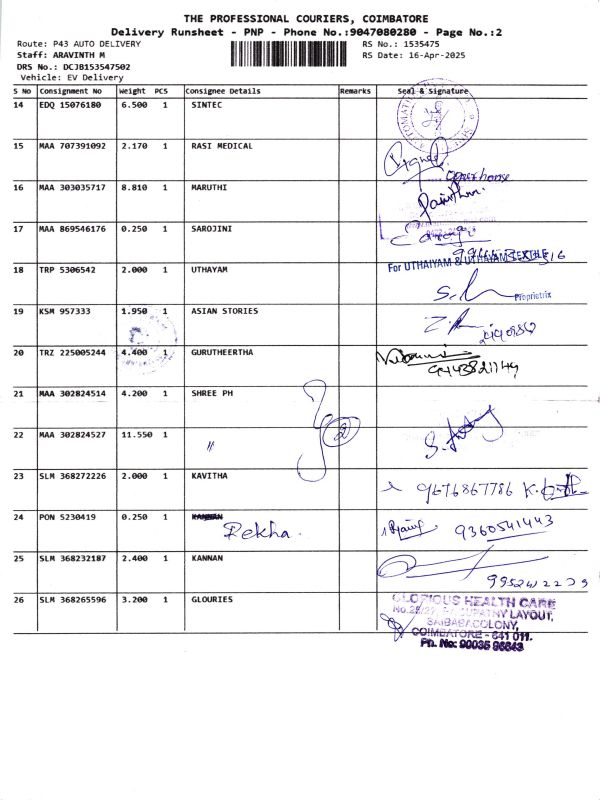 THE PROFESSIONAL COURIERS, COIMBATORE
Delivery Runsheet - PNP - Phone No.:9047080280 - Page No.:2
Route: P43 AUTO DELIVERY RS No.: 1535475
Staff: ARAVINTH M RS Date: 16-Apr-2025
DRS No.: DCJB153547502
Vehicle: EV Delivery
S No Consignment No Weight PCS Consignee Details Remarks Seal & signature
14 EDQ 15076180 6.500 1 SINTEC
15 MAA 707391092 2.170 1 RASI MEDICAL
16 MAA 303035717 8.810 1 MARUTHI
17 MAA 869546176 0.250 1 SAROJINI
18 TRP 5306542 2.000 1 UTHAYAM For UTHAIYAM & UTHAYAM TEXTILE
Proprietrix
19 KSM 957333 1.950 1 ASIAN STORIES
20 TRZ 225005244 4.400 1 GURUTHEERTHA
21 MAA 302824514 4.200 1 SHREE PH
22 MAA 302824527 11.550 1 〃
23 SLM 368272226 2.000 1 KAVITHA 9676867786
24 PON 5230419 0.250 1 KANNAN Rekha. 9360541443
25 SLM 368232187 2.400 1 KANNAN
26 SLM 368265596 3.200 1 GLOURIES GLORIOUS HEALTH CARE
LAYOUT,
SAIBABA COLONY,
COIMBATORE - 641 011.
Ph. No: 90035 96643